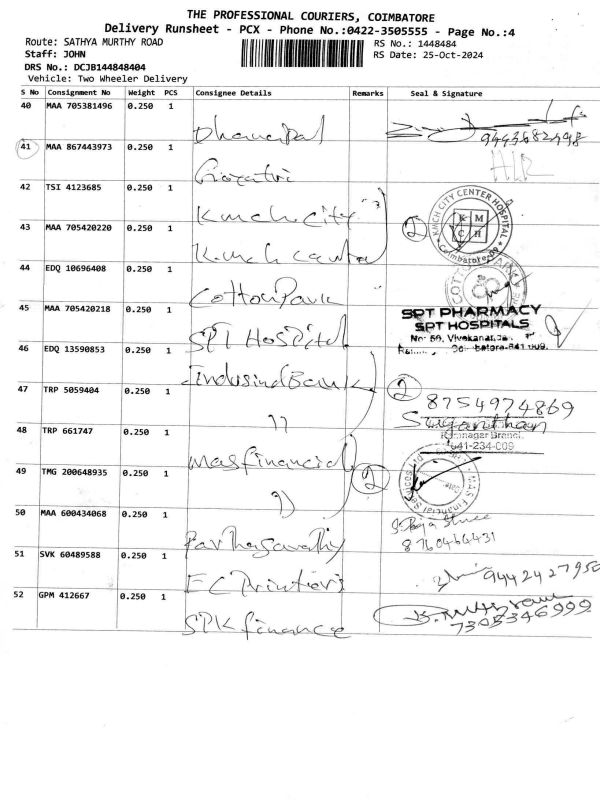 THE PROFESSIONAL COURIERS, COIMBATORE
Delivery Runsheet - PCX - Phone No.:0422-3505555 - Page No.:4
Route: SATHYA MURTHY ROAD
RS No.: 1448484
Staff: JOHN
RS Date: 25-Oct-2024
DRS No.: DCJB144848404
Vehicle: Two Wheeler Delivery
S No Consignment No Weight PCS Consignee Details Remarks Seal & Signature
40 MAA 705381496 0.250 1
9443682498
41 MAA 867443973 0.250 1 Gayatri
42 TSI 4123685 0.250 1 Kmch City
2
KMCH CITY CENTER HOSPITAL
K M
C H
Coimbatore
43 MAA 705420220 0.250 1 Kmch
44 EDQ 10696408 0.250 1 Cotton Park
45 MAA 705420218 0.250 1 SPT Hospital
SPT PHARMACY
SPT HOSPITALS
No: 59, Vivekananda
46 EDQ 13590853 0.250 1 Indusind Bank
47 TRP 5059404 0.250 1 "
2
8754974869
Ramnagar Branch
641-234-009
48 TRP 661747 0.250 1 mas financial
49 TMG 200648935 0.250 1 "
2
MAS Financial Services
50 MAA 600434068 0.250 1 Parthasarathy
8760464431
51 SVK 60489588 0.250 1 FC Printers
9442427950
52 GPM 412667 0.250 1 SPK finance
7305346999